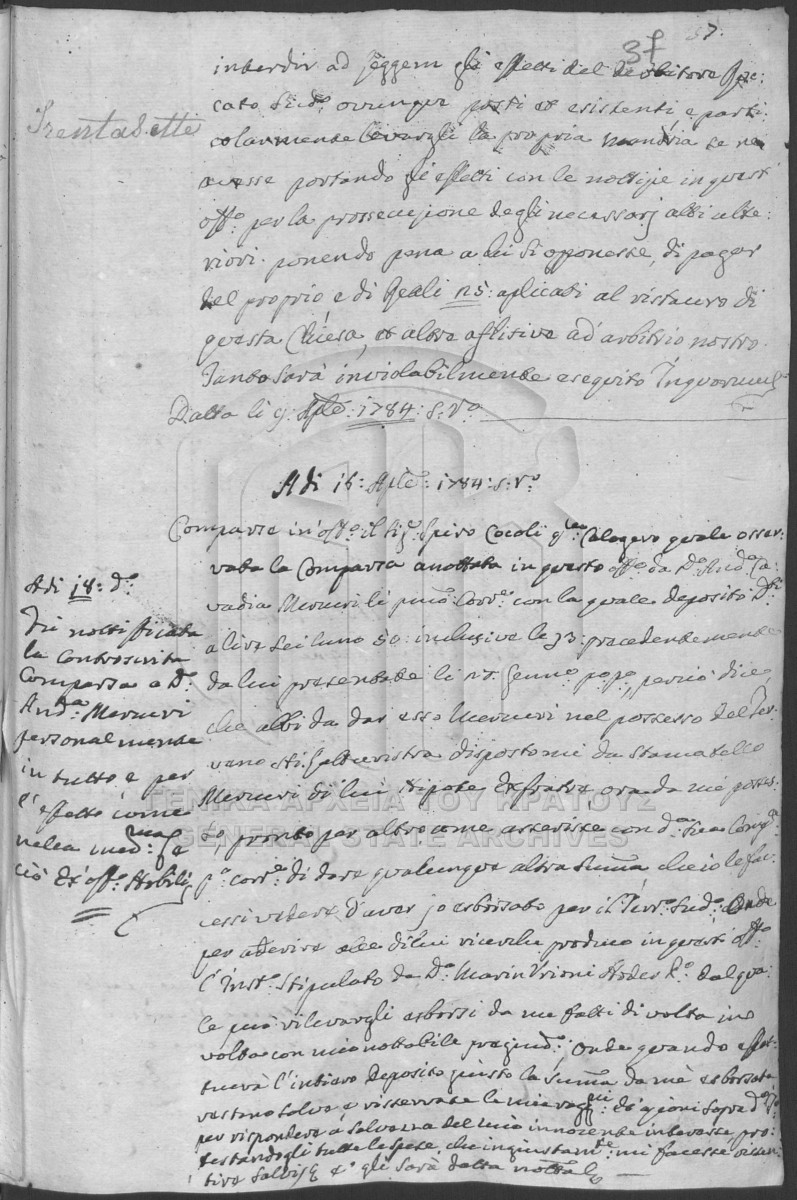 37.
37
Trentasette
interdir ad seggem gli effetti del debitore Pec:
cato Sud.º ovunque posti et esistenti, e parti
colarmente levargli la propria mandria se ne
avesse portando gli effetti con le nottizie in quest'
off.º per la prossecuzione degli necessarj atti ulte:
riori. ponendo pena a lui si opponesse, di pagar
del proprio e di Reali 25: aplicati al ristauro di
questa Chiesa, et altre aflitive ad arbitrio nostro.
Tanto sarà inviolabilmente eseguito In quorum
Datta li 9: Aple: 1784: S: Vº
Adi 16: Aple: 1784: S: Vº
Comparse in off.º il Sig.r Spiro Cocoli q.m Calogero quale osser:
vata la Comparsa anottata in questo off.º da Dº And.ª Ca:
vadia Mercuri li pmo Corr.e con la quale deposito
a lire sei l'uno 50: inclusive le 23: precedentemente
da lui presentate li 27 Genn.º pºpº, perciò dice,
che abbi da dar esso Mercuri nel possesso del Ter:
reno disposto mi da Stamatello
Mercuri di lui
pronto per altro come asserisce con d.ª Sua Comp.ª
pº corr.e di dare qualunque altra summa che io le fa:
cessi vedere d'aver jo esborsato per il Terr.º Sud.º Onde
per aderire alle di lui ricerche produco in quest' off.º
l'Inst.º Stipulato da Dº Marin Vrioni Nodro Pº dal qua:
le può rilevargli esborsi da me fatti di volta in
volta con mio nottabile pregiud.º; Onde quando effet:
tuerà l'intiero Deposito giusto la summa da me esborsata
restano salve e risservate le mie ragioni ed azioni sopra dº
per rispondere a salvezza del mio innocente interesse pro:
testandogli tutte le spese, che ingiustam.te mi facesse
tive salvis & et gli sarà datta
Adi 18: dº
Fù nottificata
la controscritta
Comparsa a Dº
And.ª Mercuri
personalmente
in tutto e per
l'effetto come
nella med.ma &
ciò Ex off.º Nobili
ΓΕΝΙΚΑ ΑΡΧΕΙΑ ΤΟΥ ΚΡΑΤΟΥΣ
GENERAL STATE ARCHIVES